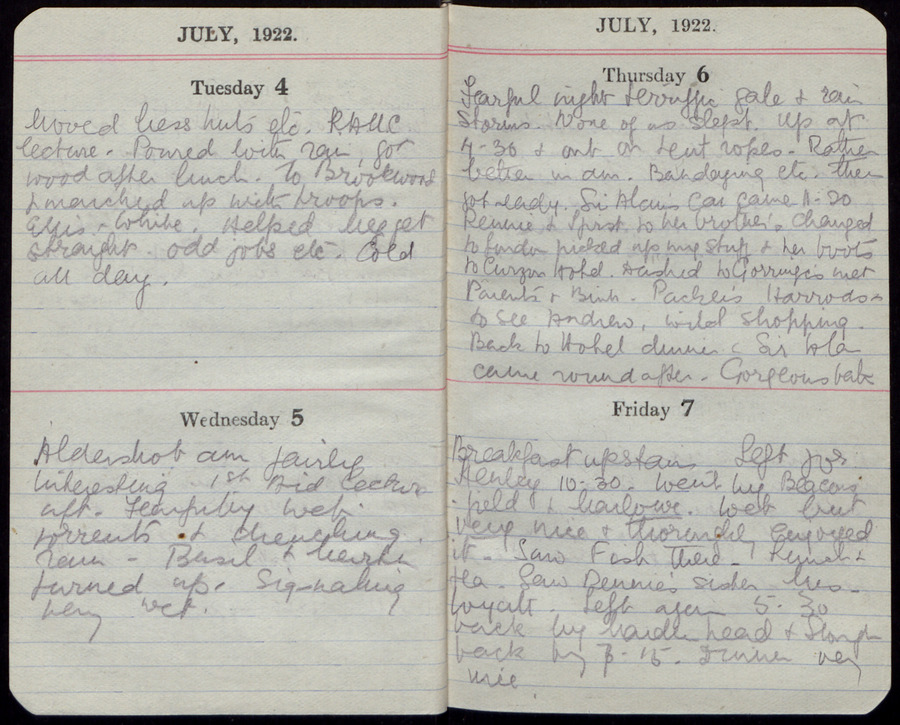 JULY, 1922.
Tuesday 4
Moved Mess huts etc. RAMC
lecture. Poured with rain, got
wood after lunch. To Brookwood
& marched up with troops.
Ellis - White. Helped
straight. odd jobs etc. Cold
all day.
Wednesday 5
Aldershot am fairly
interesting 1st Aid lecture
aft. Fearfully wet.
torrents & drenching
rain - Basil &
turned up. Signalling
very wet.
JULY, 1922.
Thursday 6
Fearful night terrific gale & rain
storms. None of us slept. Up at
4-30 & out on tent ropes. Rather
better in am. Bandaging etc. then
got ready. Sir Alans Car came 11-30
Rennie & first to her brother's. Changed
to London picked up my stuff & her boots
to Curzon Hotel. Dashed to Gorringes met
Parents & Binh. Packers Harrods &
to see Andrew, wild shopping.
Back to Hotel dinner Sir Alan
came round after. Gorgeous bath
Friday 7
Breakfast upstairs Left for
Henley 10-30. Went by Beacons
field & Marlowe. Wet but
very nice & thoroughly enjoyed
it - Saw Fish there. Lunch &
tea. Saw Rennie's sister Mrs
Left again 5-30
back by Maidenhead & Slough
back by 7-15. Dinner very
nice.